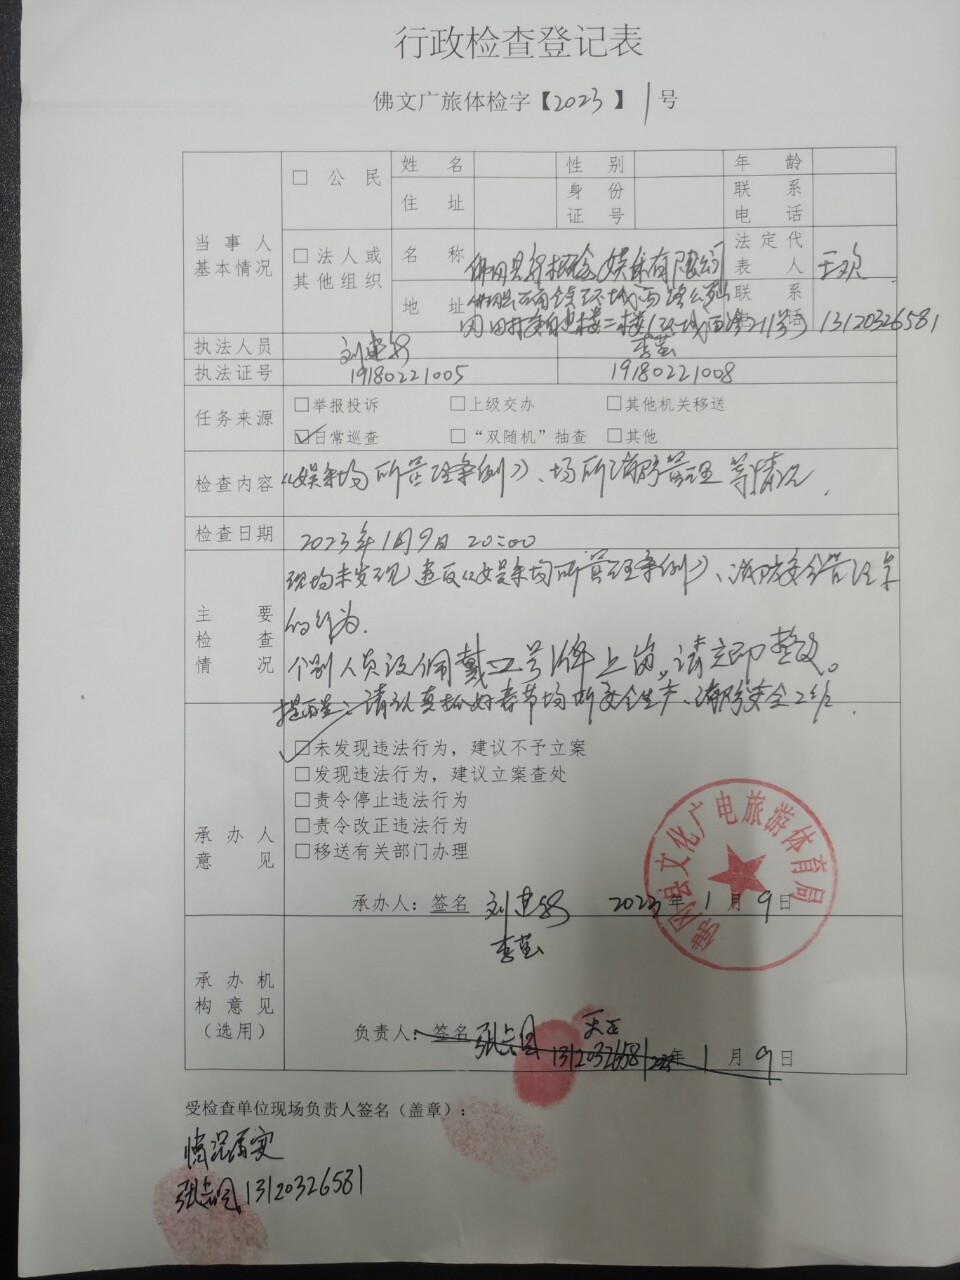 行政检查登记表
佛文广旅体检字【2023】1号
当事人基本情况
□ 公民
姓名
性别
年龄
住址
身份证号
联系电话
□法人或其他组织
名称 佛冈县 概念娱乐有限公司
法定代表人 王欢
地址 佛冈县石角镇环城西路 楼二楼(环城西路211号)
联系 13120326581
执法人员 刘建 李茧
执法证号 19180221005 19180221008
任务来源
□举报投诉 □上级交办 □其他机关移送
☑日常巡查 □“双随机”抽查 □其他
检查内容 《娱乐场所管理条例》、场所消防管理等情况.
检查日期 2023年1月9日 20:00
主要检查情况
现场未发现违反《娱乐场所管理条例》、消防安全管理条
的行为.
个别人员没佩戴工号牌上岗,请立即整改。
提醒:请认真抓好春节场所安全生产、消防安全工作.
承办人意见
☑未发现违法行为,建议不予立案
□发现违法行为,建议立案查处
□责令停止违法行为
□责令改正违法行为
□移送有关部门办理
承办人:签名 刘建 2023年1月9日
李茧
佛冈县文化广电旅游体育局
承办机构意见(选用)
负责人:签名 年1月9日
13120326581
受检查单位现场负责人签名(盖章):
情况属实
13120326581